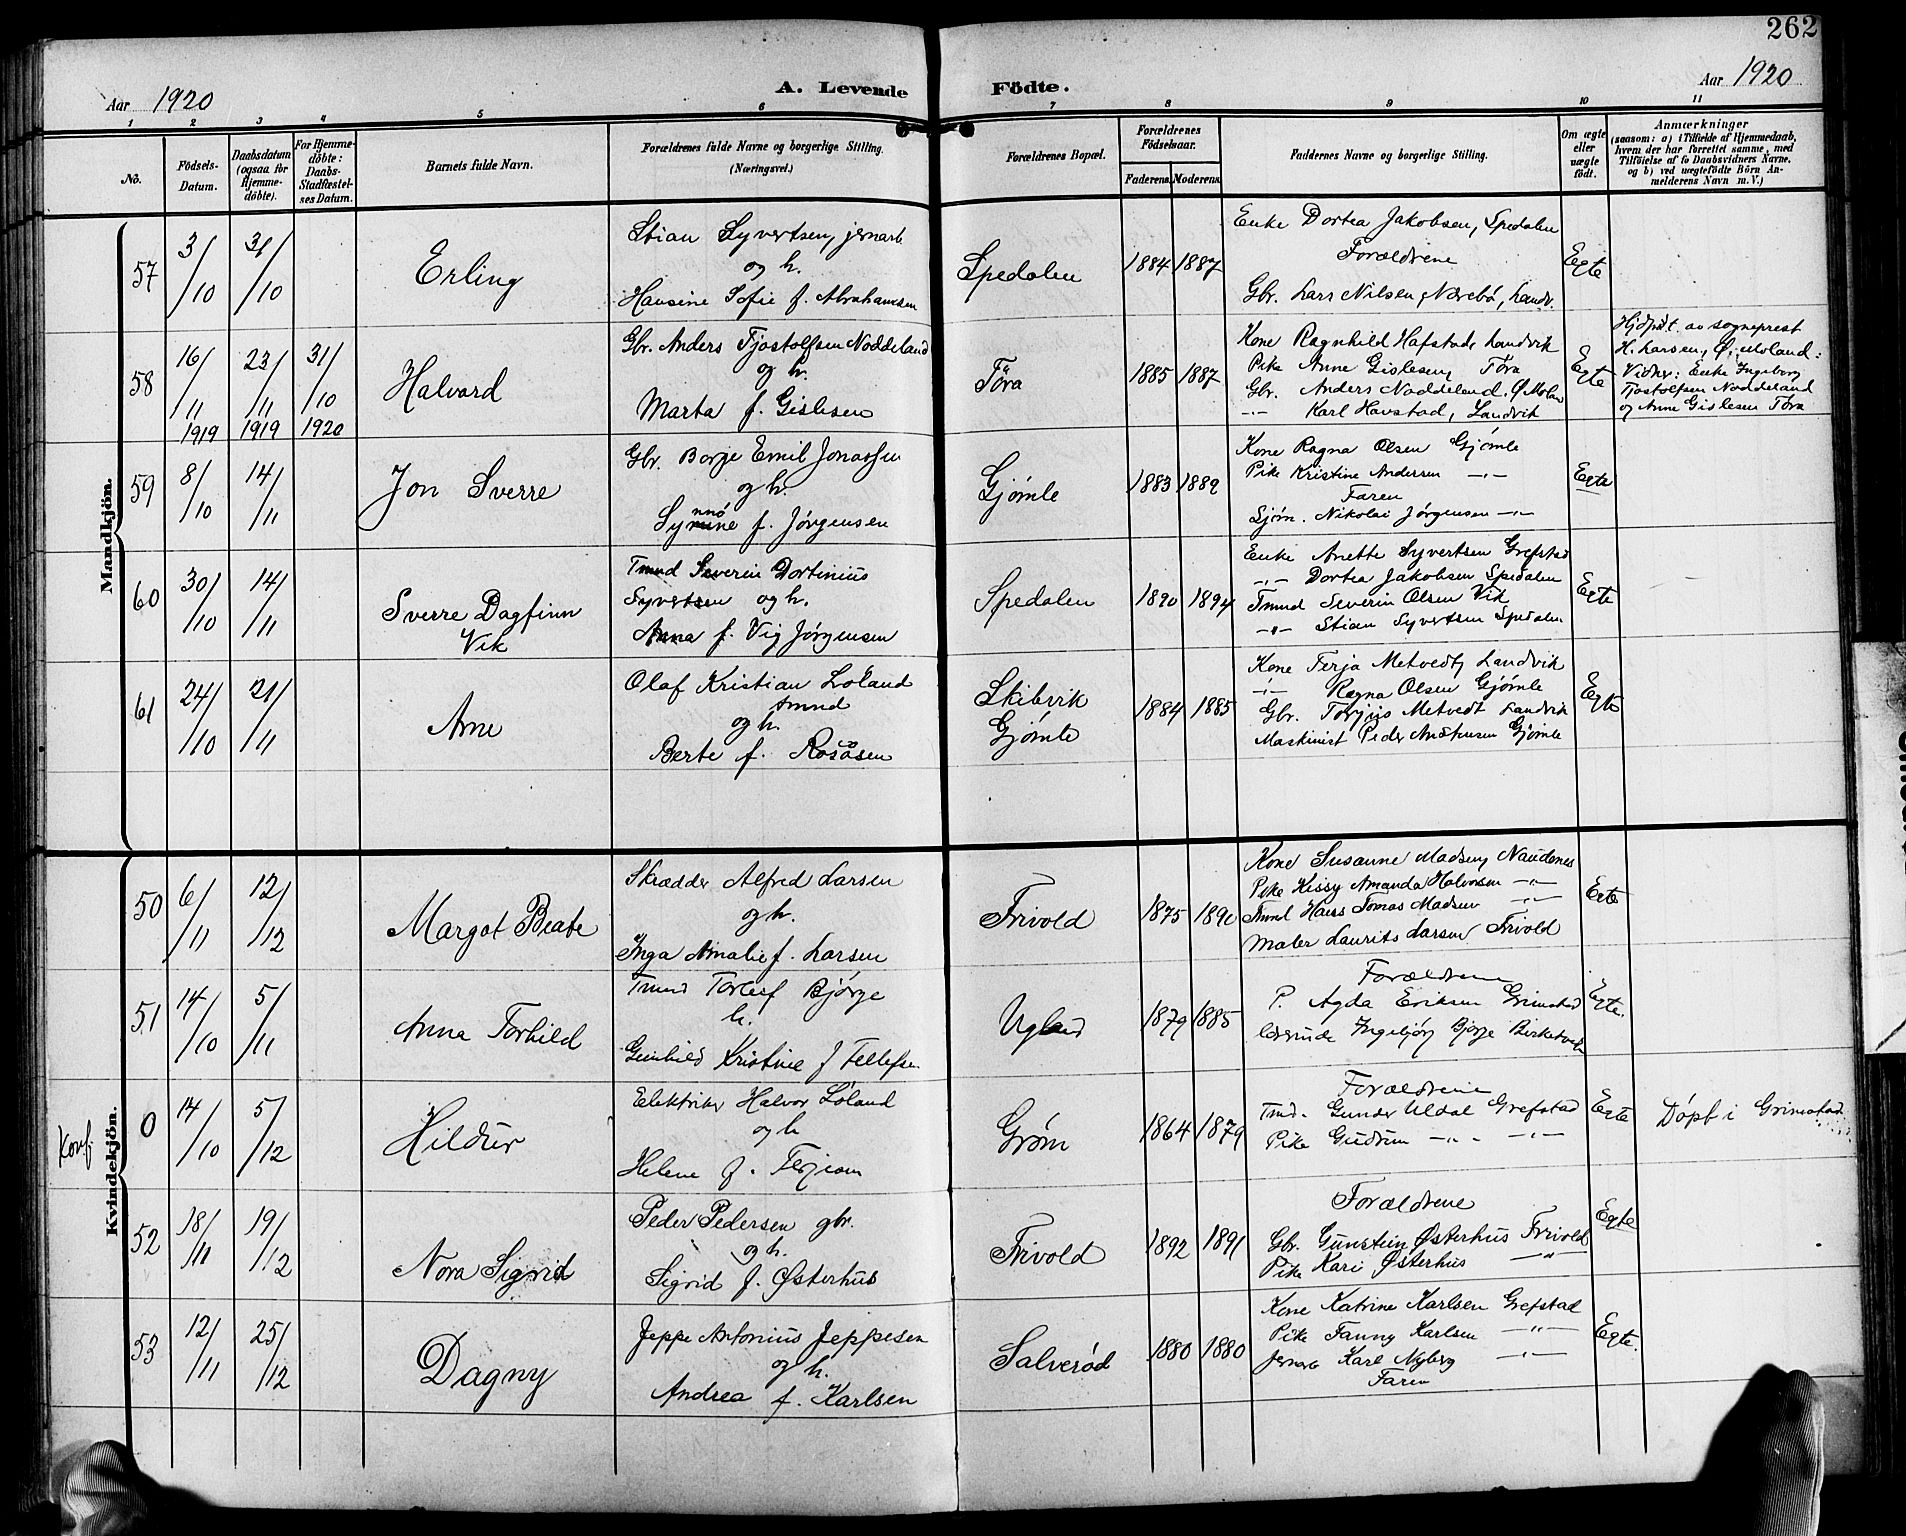 262
Aar 1920
A. Levende Födte.
Aar 1920
1 2 3 4 5 6 7 8 9 10 11
No.
Födsels-
Datum.
Daabsdatum
(ogsaa for
Hjemme-
döbte).
For Hjemme-
döbte:
Daabs-
Stadfæstel-
ses Datum.
Barnets fulde Navn.
Forældrenes fulde Navne og borgerlige Stilling.
(Næringsvei.)
Forældrenes Bopæl.
Forældrenes
Födselsaar.
Faderens. Moderens.
Faddernes Navne og borgerlige Stilling.
Om ægte
eller
uægte
födt.
Anmærkninger
(saasom: a) i Tilfælde af Hjemmedaab,
hvem der har forrettet samme, med
Tilföielse af to Daabsvidners Navne,
og b) ved uægtefödte Börn An-
melderens Navn m. V.)
Mandkjön.
57 3/10 31/10
Erling
Stian Syvertsen, jernarb
og h.
Hansine Sofie f. Abrahamsen
Spedalen
1884 1887
Enke Dortea Jakobsen, Spedalen
Forældrene
Gbr. Lars Nilsen, Nærebö, Landv.
Egte
58 16/11 1919 23/11 1919 31/10 1920
Halvard
Gbr. Anders Tjostolfsen Noddeland
og h.
Marta f. Gislesen
Töra
1885 1887
Kone Ragnhild Hafstad, Landvik
Pike Anne Gislesen, Töra
Gbr. Anders Noddeland. Ø. Molan
-"- Karl Havstad, Landvik
Egte
Hjdöpt. av sogneprest
H. Larsen, Ø. Moland:
Vidner: Enke Ingeborg
Tjostolfsen Noddeland
og Anne Gislesen Töra
59 8/10 14/11
Jon Sverre
Gbr. Borge Emil Jonassen
og h.
Synnö f. Jörgensen
Gjömle
1883 1889
Kone Ragna Olsen Gjömle
Pike Kristine Andersen -"-
Faren
Sjöm. Nikolai Jörgensen -"-
Egte
60 30/10 14/11
Sverre Dagfinn
Vik
Tmnd Severin Dortinius
Syvertsen og h.
Anna f. Vig Jörgensen
Spedalen
1890 1894
Enke Anette Syvertsen Grefstad
-"- Dortea Jakobsen Spedalen
Tmnd Severin Olsen Vik
-"- Stian Syvertsen Spedalen
Egte
61 24/10 21/11
Arne
Olaf Kristian Löland
tmnd
og h.
Berte f. Rosåsen
Skibvik
Gjömle
1884 1885
Kone Terja Metvedt, Landvik
-"- Ragna Olsen Gjömle
Gbr. Torjus Metvedt Landvik
Maskinist Peder Gjömle
Egte
Kvindekjön.
50 6/11 12/12
Margot Beate
Skrædder Alfred Larsen
og h.
Inga Amalie f. Larsen
Frivold
1875
Kone Susanne Madsen, Naudenes
Pike Kissy Amanda Halvorsen -"-
Tmnd Hans Tomas Madsen -"-
Maler Laurits Larsen, Frivold
Egte
51 14/10 5/11
Anna Torhild
Tmnd Torleif Bjørge
h.
Gunhild Kristine f Tellefsen
Ugland
1879 1885
Forældrene
P. Agda Eriksen Grimstad
lærerinde Ingebjörg Bjørge
Egte.
Konf.
0 14/10 5/12
Hildur
Elektriker Halvor Löland
og h
Helene f. Terjesen
Grøm
1864 1879
Forældrene
Tmd. Gunder Uldal Grefstad
Pike Gudrun -"- -"-
Egte
Döpt i Grimstad
52 18/11 19/12
Nora Sigrid
Peder Pedersen gbr.
og h.
Sigrid f. Østerhus
Frivold
1892 1891
Forældrene
Gbr. Gunstein Østerhus Frivold
Pike Kari Østerhus -"-
Egte
53 12/11 25/12
Dagny
Jeppe Antonius Jeppesen
og h.
Andrea f. Karlsen
Salveröd
1880 1880
Kone Katrine Karlsen Grefstad
Pike Fanny Karlsen -"-
Jernarb Karl Nyberg -"-
Faren
Egte.